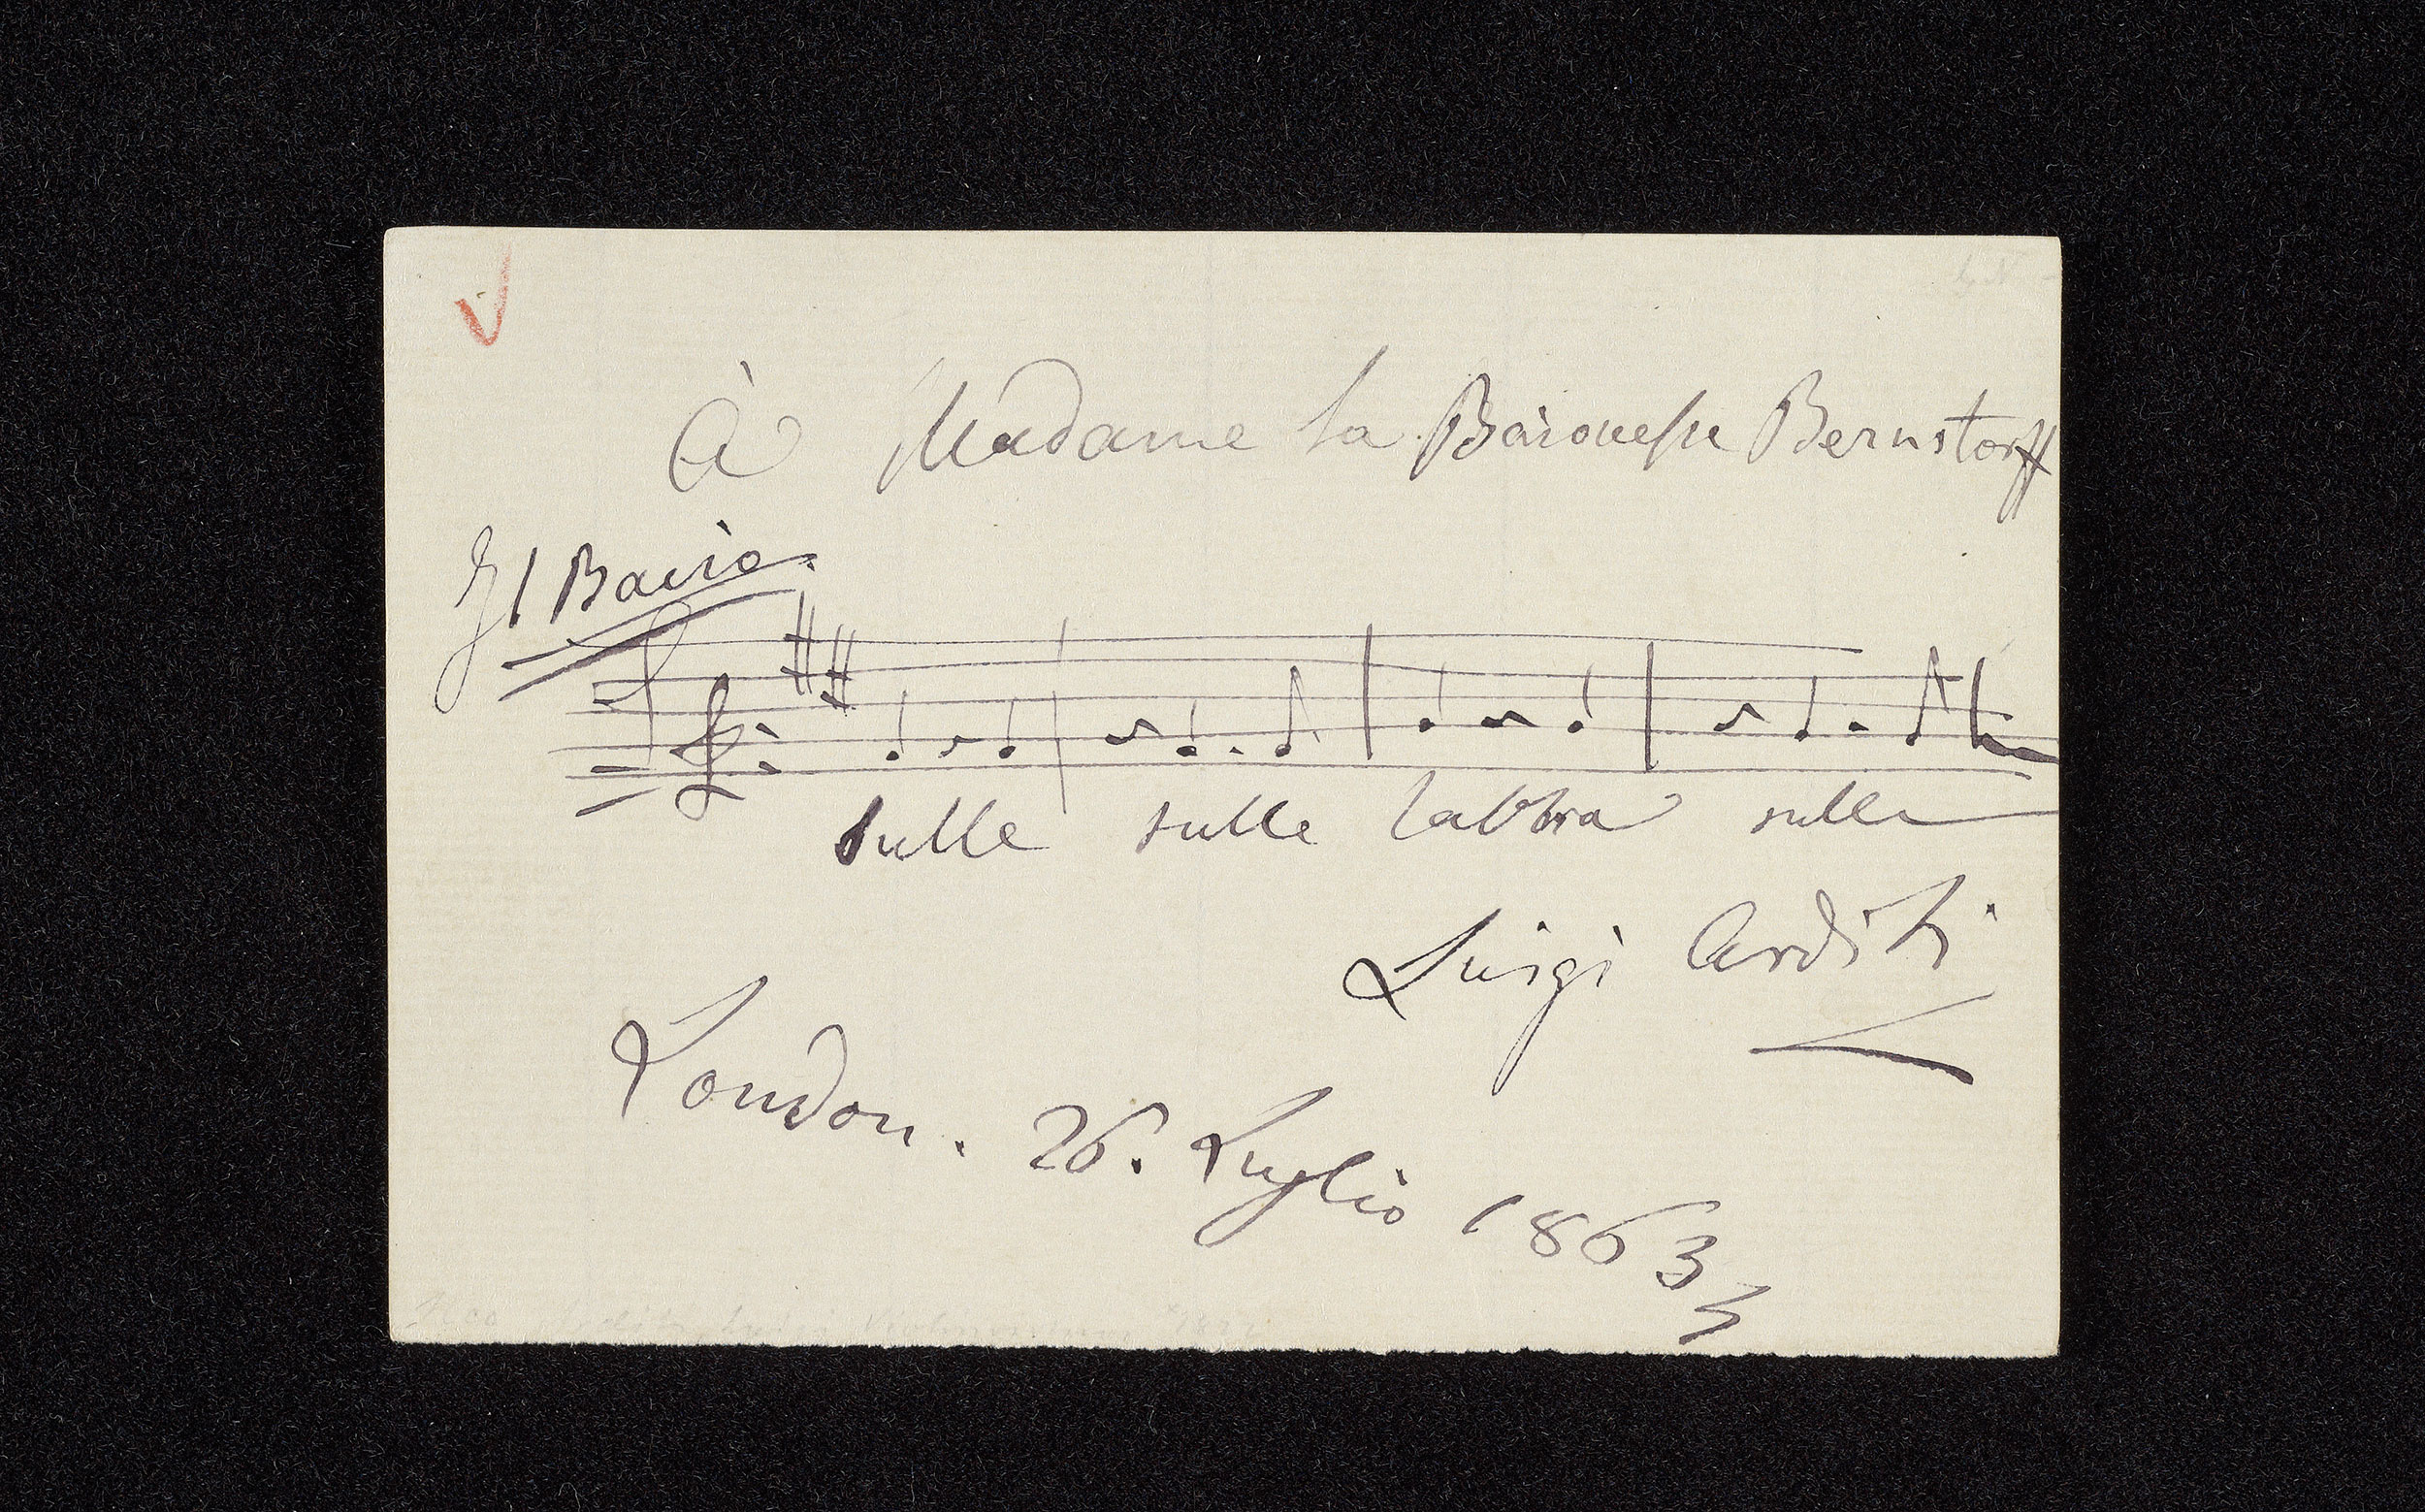 À Madame la Baronesse Bernstorff
Il Bacio.
sulle sulle labbra sulle
Luigi Arditi
London. 26. Luglio 1863